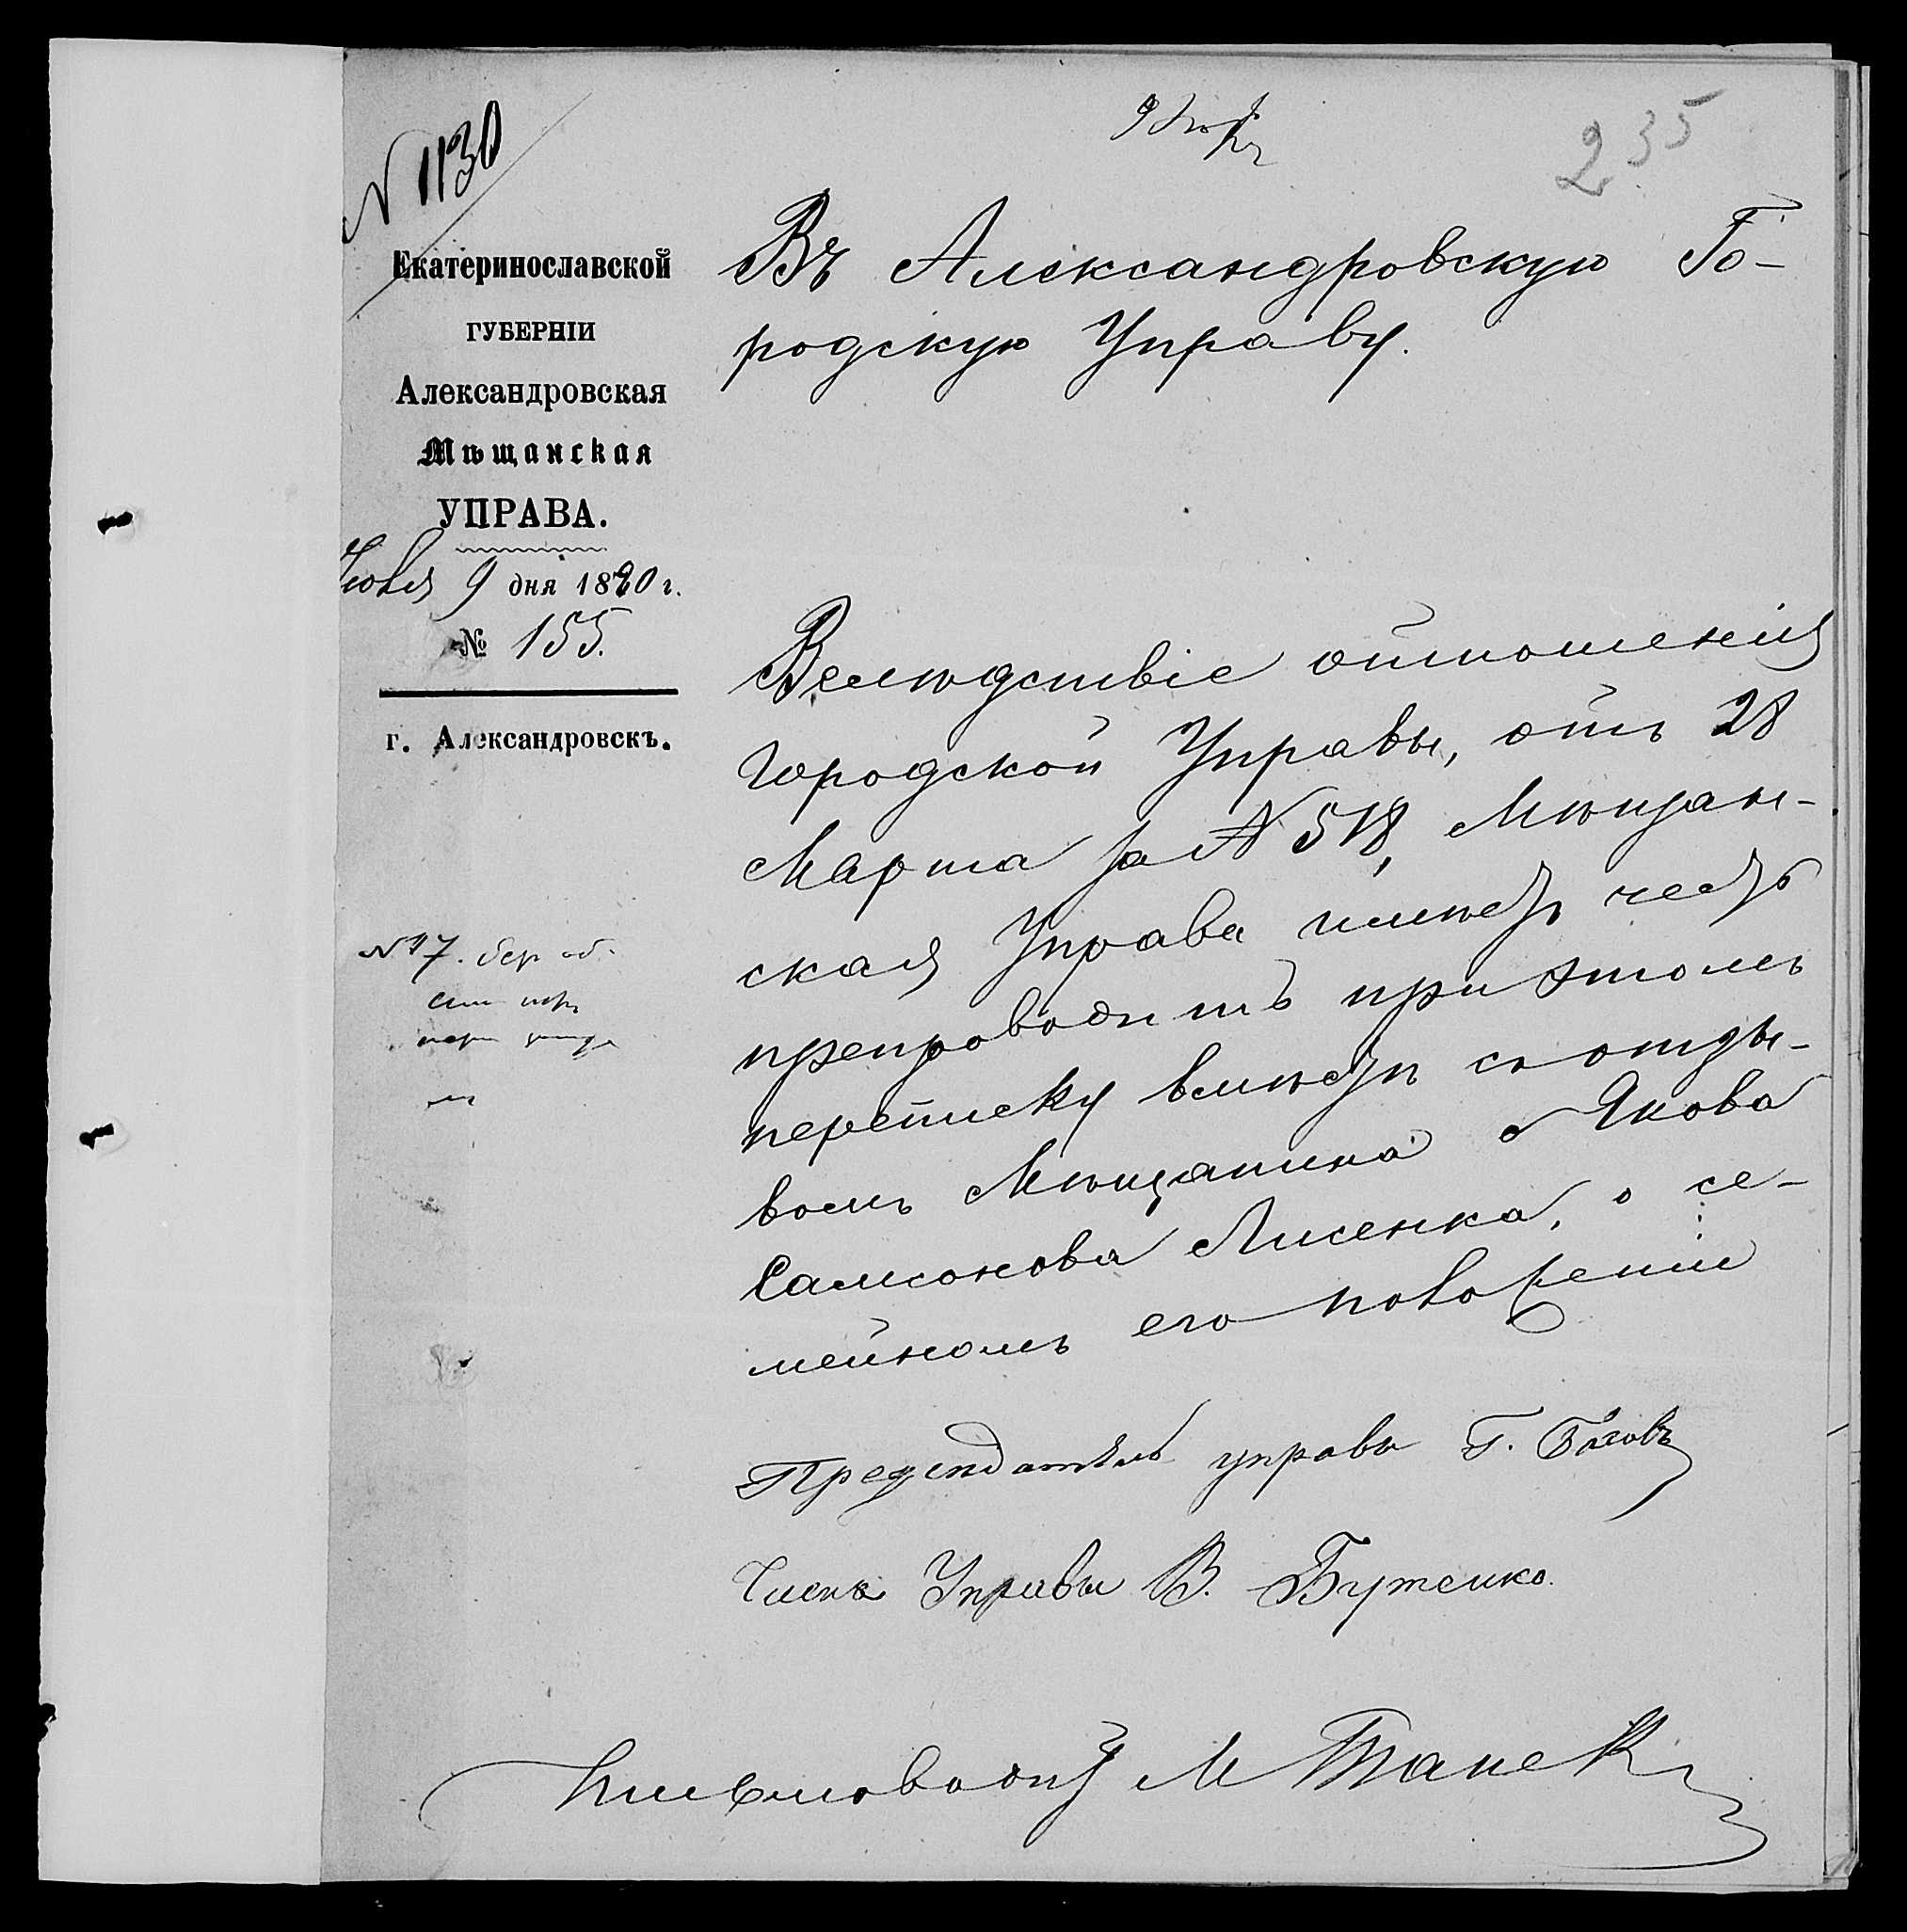 № 1130
235
Екатеринославской
ГУБЕРНІИ
Александровская
Мѣщанская
УПРАВА.
9 дня 1880 г.
№ 155.
г. Александровскъ.
Въ Александровскую Го-
родскую Управу.
Вслѣдствіе отношенія
Городской Управы, отъ 28
Марта за № 518, Мѣщан-
ская Управа имѣетъ честь
препроводить при этомъ
переписку вмѣстѣ съ отзы-
вомъ Мѣщанина Якова
Самсонова Лисенка, о се-
мейномъ его положеніи
Предсѣдатель управы Г.
Членъ Управы В. Бутенко.
Письмоводит М
№ 17.